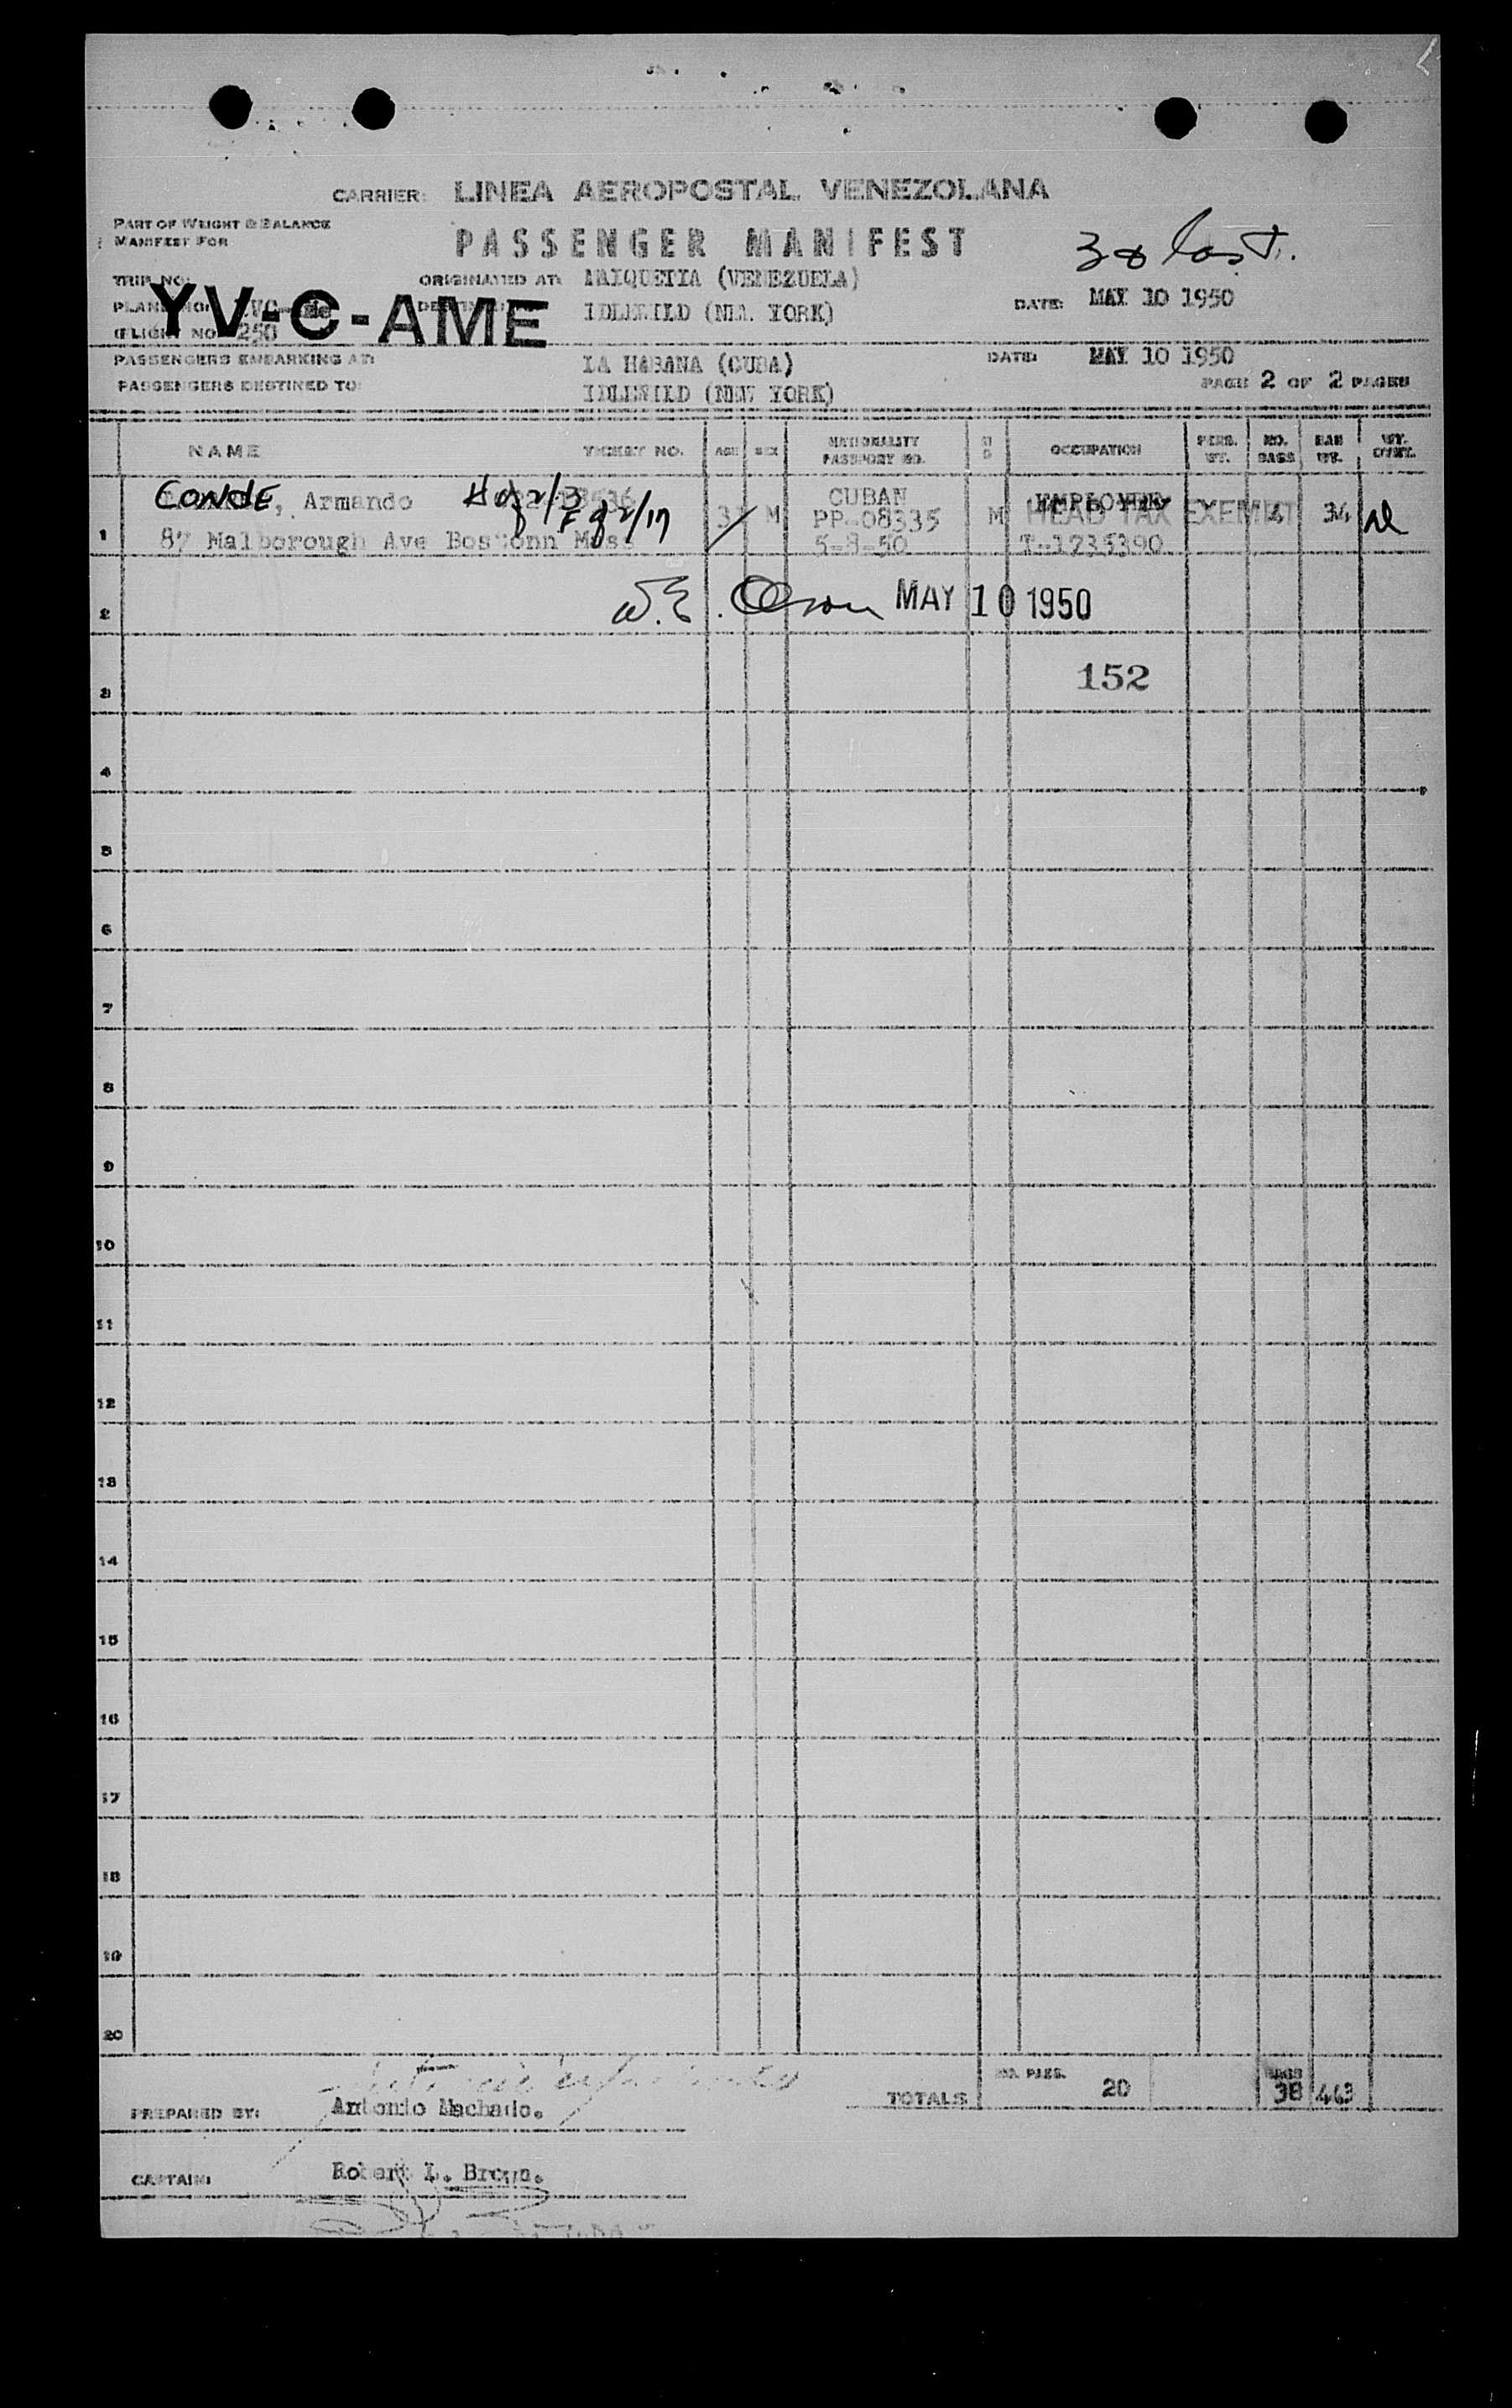 CARRIER: LINEA AEROPOSTAL VENEZOLANA
PART OF WEIGHT & BALANCE
MANIFEST FOR
PASSENGER MANIFEST
TRIP NO:
ORIGINATED AT: MAIQUETIA (VENEZUELA)
PLANE NO:
YV-C-AME
IDLEWILD (NEW YORK)
DATE: MAY 10 1950
FLIGHT NO: 250
PASSENGERS EMBARKING AT: LA HABANA (CUBA)
DATE: MAY 10 1950
PASSENGERS DESTINED TO: IDLEWILD (NEW YORK)
PAGE 2 OF 2 PAGES
NAME TICKET NO. AGE SEX NATIONALITY PASSPORT NO. M S OCCUPATION PERS. WT. NO. BAGS BAG WT. WT. OVWT.
1 CONDE, Armando M CUBAN PP-08335 5-8-50 M EMPLOYEE HEAD TAX EXEMPT T-1235390 4 34
87 Malborough Ave Bostonn Mass
2 W.E. Olson MAY 10 1950
3 152
4
5
6
7
8
9
10
11
12
13
14
15
16
17
18
19
20
TOTALS NO. PASS. 20 BAGS 38 443
PREPARED BY: Antonio Machado.
CAPTAIN: Robert L. Brown.